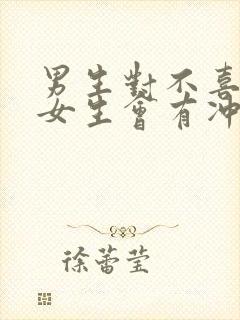 男生對不喜
女生會有沖
徐蕾莹